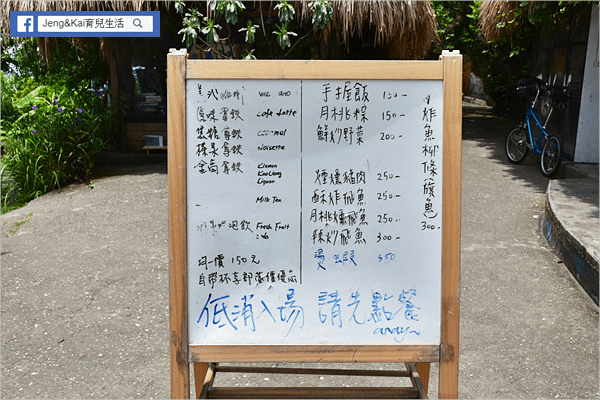 Jeng&Kai育兒生活
美式咖啡
原味拿鐵 Cafe Latte
焦糖拿鐵
榛果拿鐵 Noisette
金高拿鐵 Kinmen Kaoliang Liquor
Milk Tea
Fresh Fruit
均一價 150元
自帶杯享部落價優惠
手握飯 100-
月桃粽 150-
鮮炒野菜 200-
煙燻豬肉 250-
酥炸飛魚 250-
月桃燻飛魚 250-
辣炒飛魚 300-
炸魚柳條旗魚 300-
350
低消入場 請先點餐
andy~